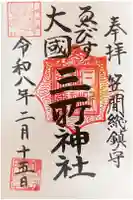 奉拝 笠間総鎮守
三所神社
ゑびす
大國
令和八年二月十五日